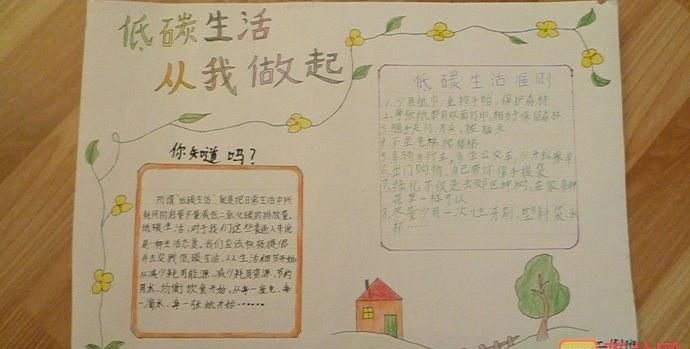 低碳生活
从我做起
你知道吗?
所谓"低碳生活",就是把日常生活中所
耗用的能量尽量减低二氧化碳的排放量。
低碳生活,对于我们这些普通人来说
是一种生活态度。我们应该积极提倡
并去实践低碳生活,从生活细节开始
从减少耗用能源、减少耗用资源、节约
用水、均衡饮食开始,从每一度电、每
一滴水、每一张纸开始……
低碳生活准则
1.少用纸巾,重拾手帕,保护森林
2.每张纸都用双面打印,相当于保留森林
3.随手关灯、开关、拔插头
4.不坐电梯爬楼梯
5.多骑自行车,多坐公交车,少开私家车
6.出门购物,自己带环保手提袋
7.绿化不仅是去郊区种树,在家养种
花草一样可以
8.尽量少用一次性牙刷,塑料袋、水
杯……